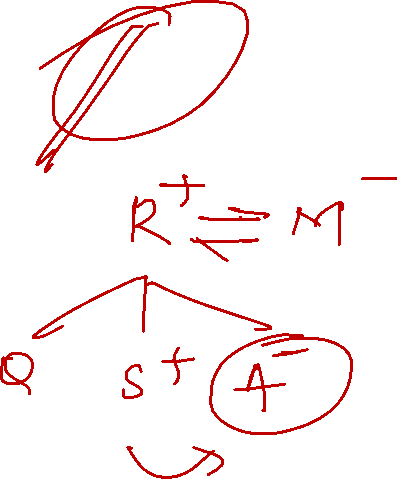 R⁺ ⇌ M⁻
Q S⁺ A⁻